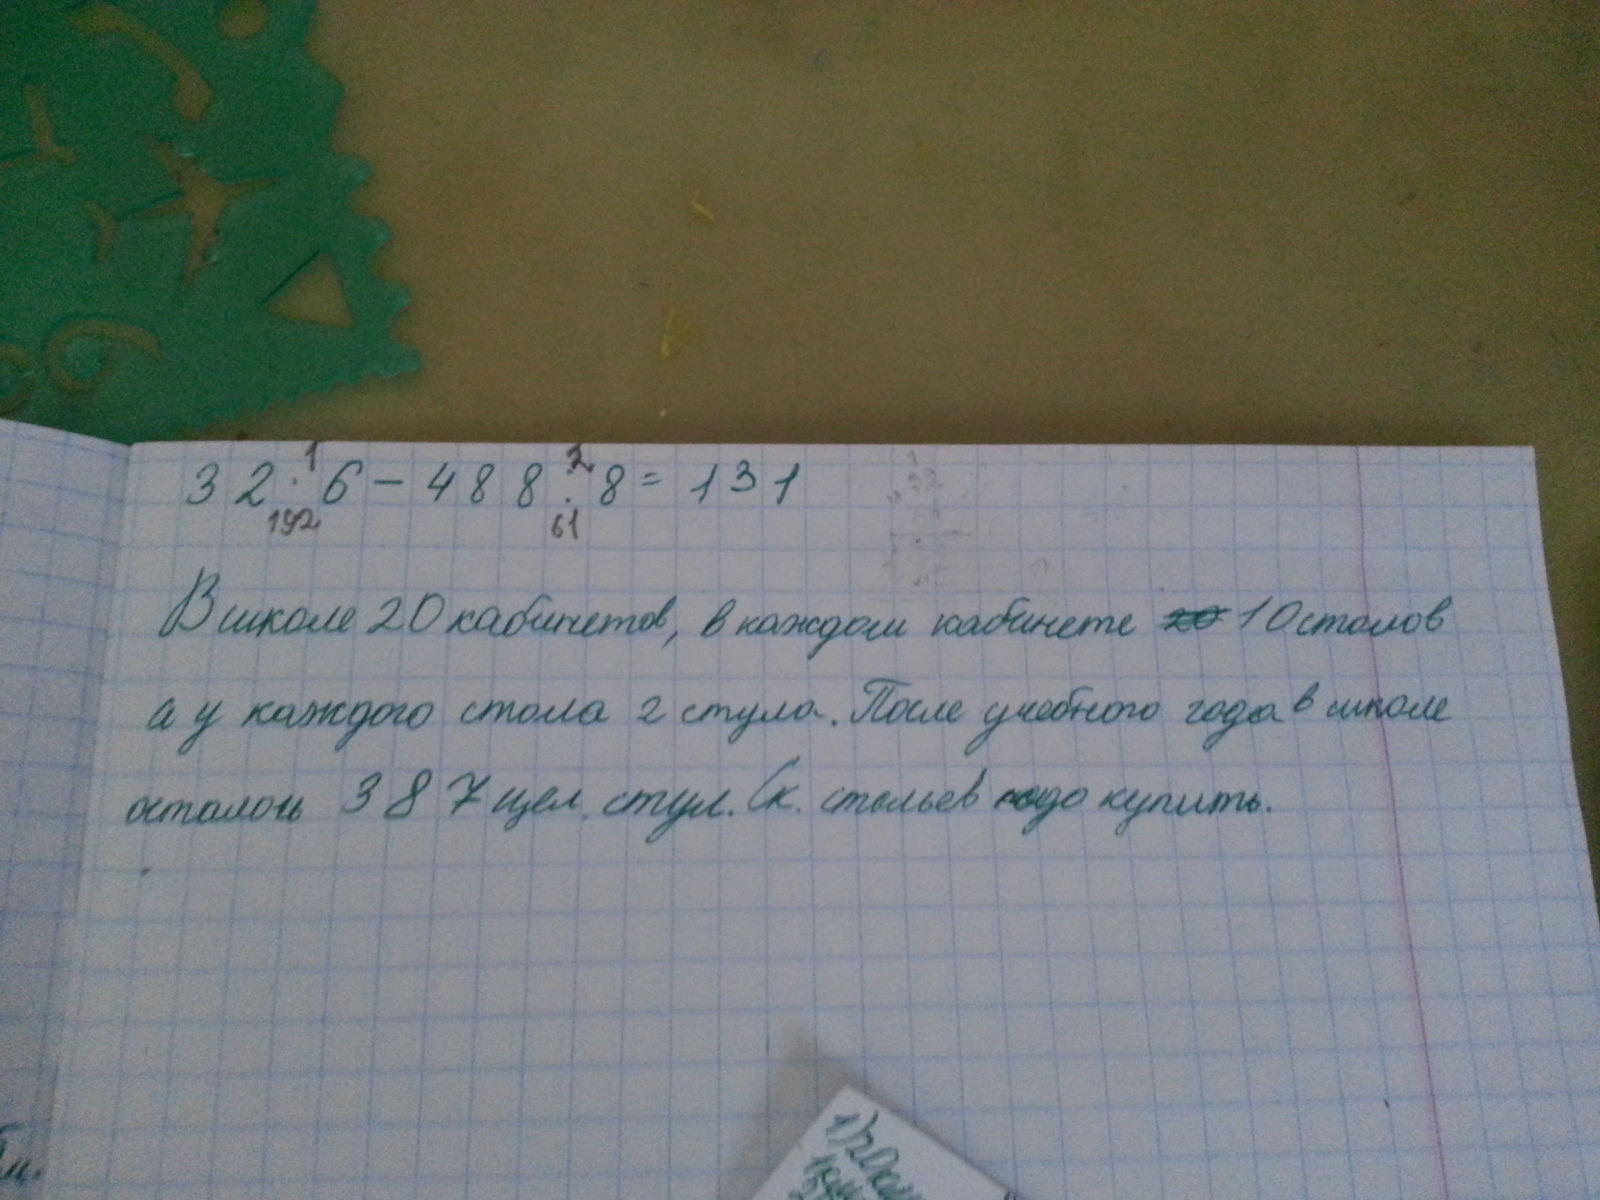 1 2
32 · 6 - 488 : 8 = 131
192 61
В школе 20 кабинетов, в каждом кабинете 10 столов
а у каждого стола 2 стула. После учебного года в школе
осталось 387 цел. стул. Ск. стольев надо купить.
1) 20